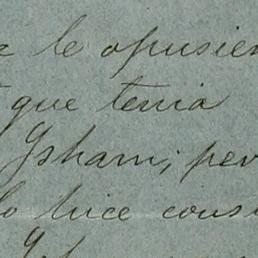 le opusier
que tenia
Ysham; per
lo hice cons